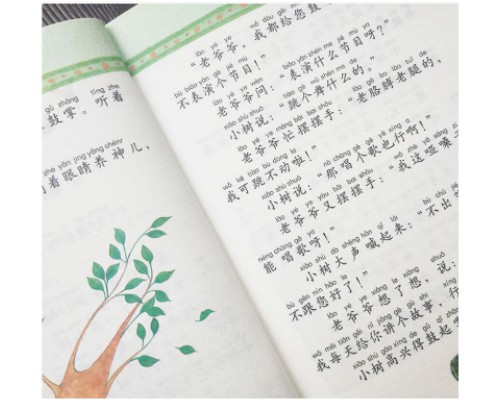 gǔ zhǎng tīng zhe
鼓掌。听着
zhe yǎn jing yǎng shénr
着眼睛养神儿，
lǎo yé ye wǒ dōu gěi nín gǔ
“老爷爷，我都给您鼓
bù biǎo yǎn gè jié mù
不表演个节目！”
lǎo yé ye wèn biǎo yǎn shén me jié mù ya
老爷爷问：“表演什么节目呀？”
xiǎo shù shuō tiào gè wǔ shén me de
小树说：“跳个舞什么的。”
lǎo yé ye máng bǎi bai shǒu lǎo gē bo lǎo tuǐ de
老爷爷忙摆摆手：“老胳膊老腿的，
wǒ kě tiào bú dòng la
我可跳不动啦！”
xiǎo shù shuō nà chàng gè gē yě xíng a
小树说：“那唱个歌也行啊！”
lǎo yé ye yòu bǎi bai shǒu wǒ zhè sǎng
老爷爷又摆摆手：“我这嗓
néng chàng gē ya
能唱歌呀！”
xiǎo shù dà shēng hǎn qǐ lái bù chū
小树大声喊起来：“不出
bù gēn nín hǎo le
不跟您好了！”
lǎo yé ye xiǎng le xiǎng shuō
老爷爷想了想，说：
wǒ měi tiān gěi nǐ jiǎng gè gù shi xíng
我每天给你讲个故事，行
xiǎo shù gāo xìng de gǔ qǐ
小树高兴得鼓起